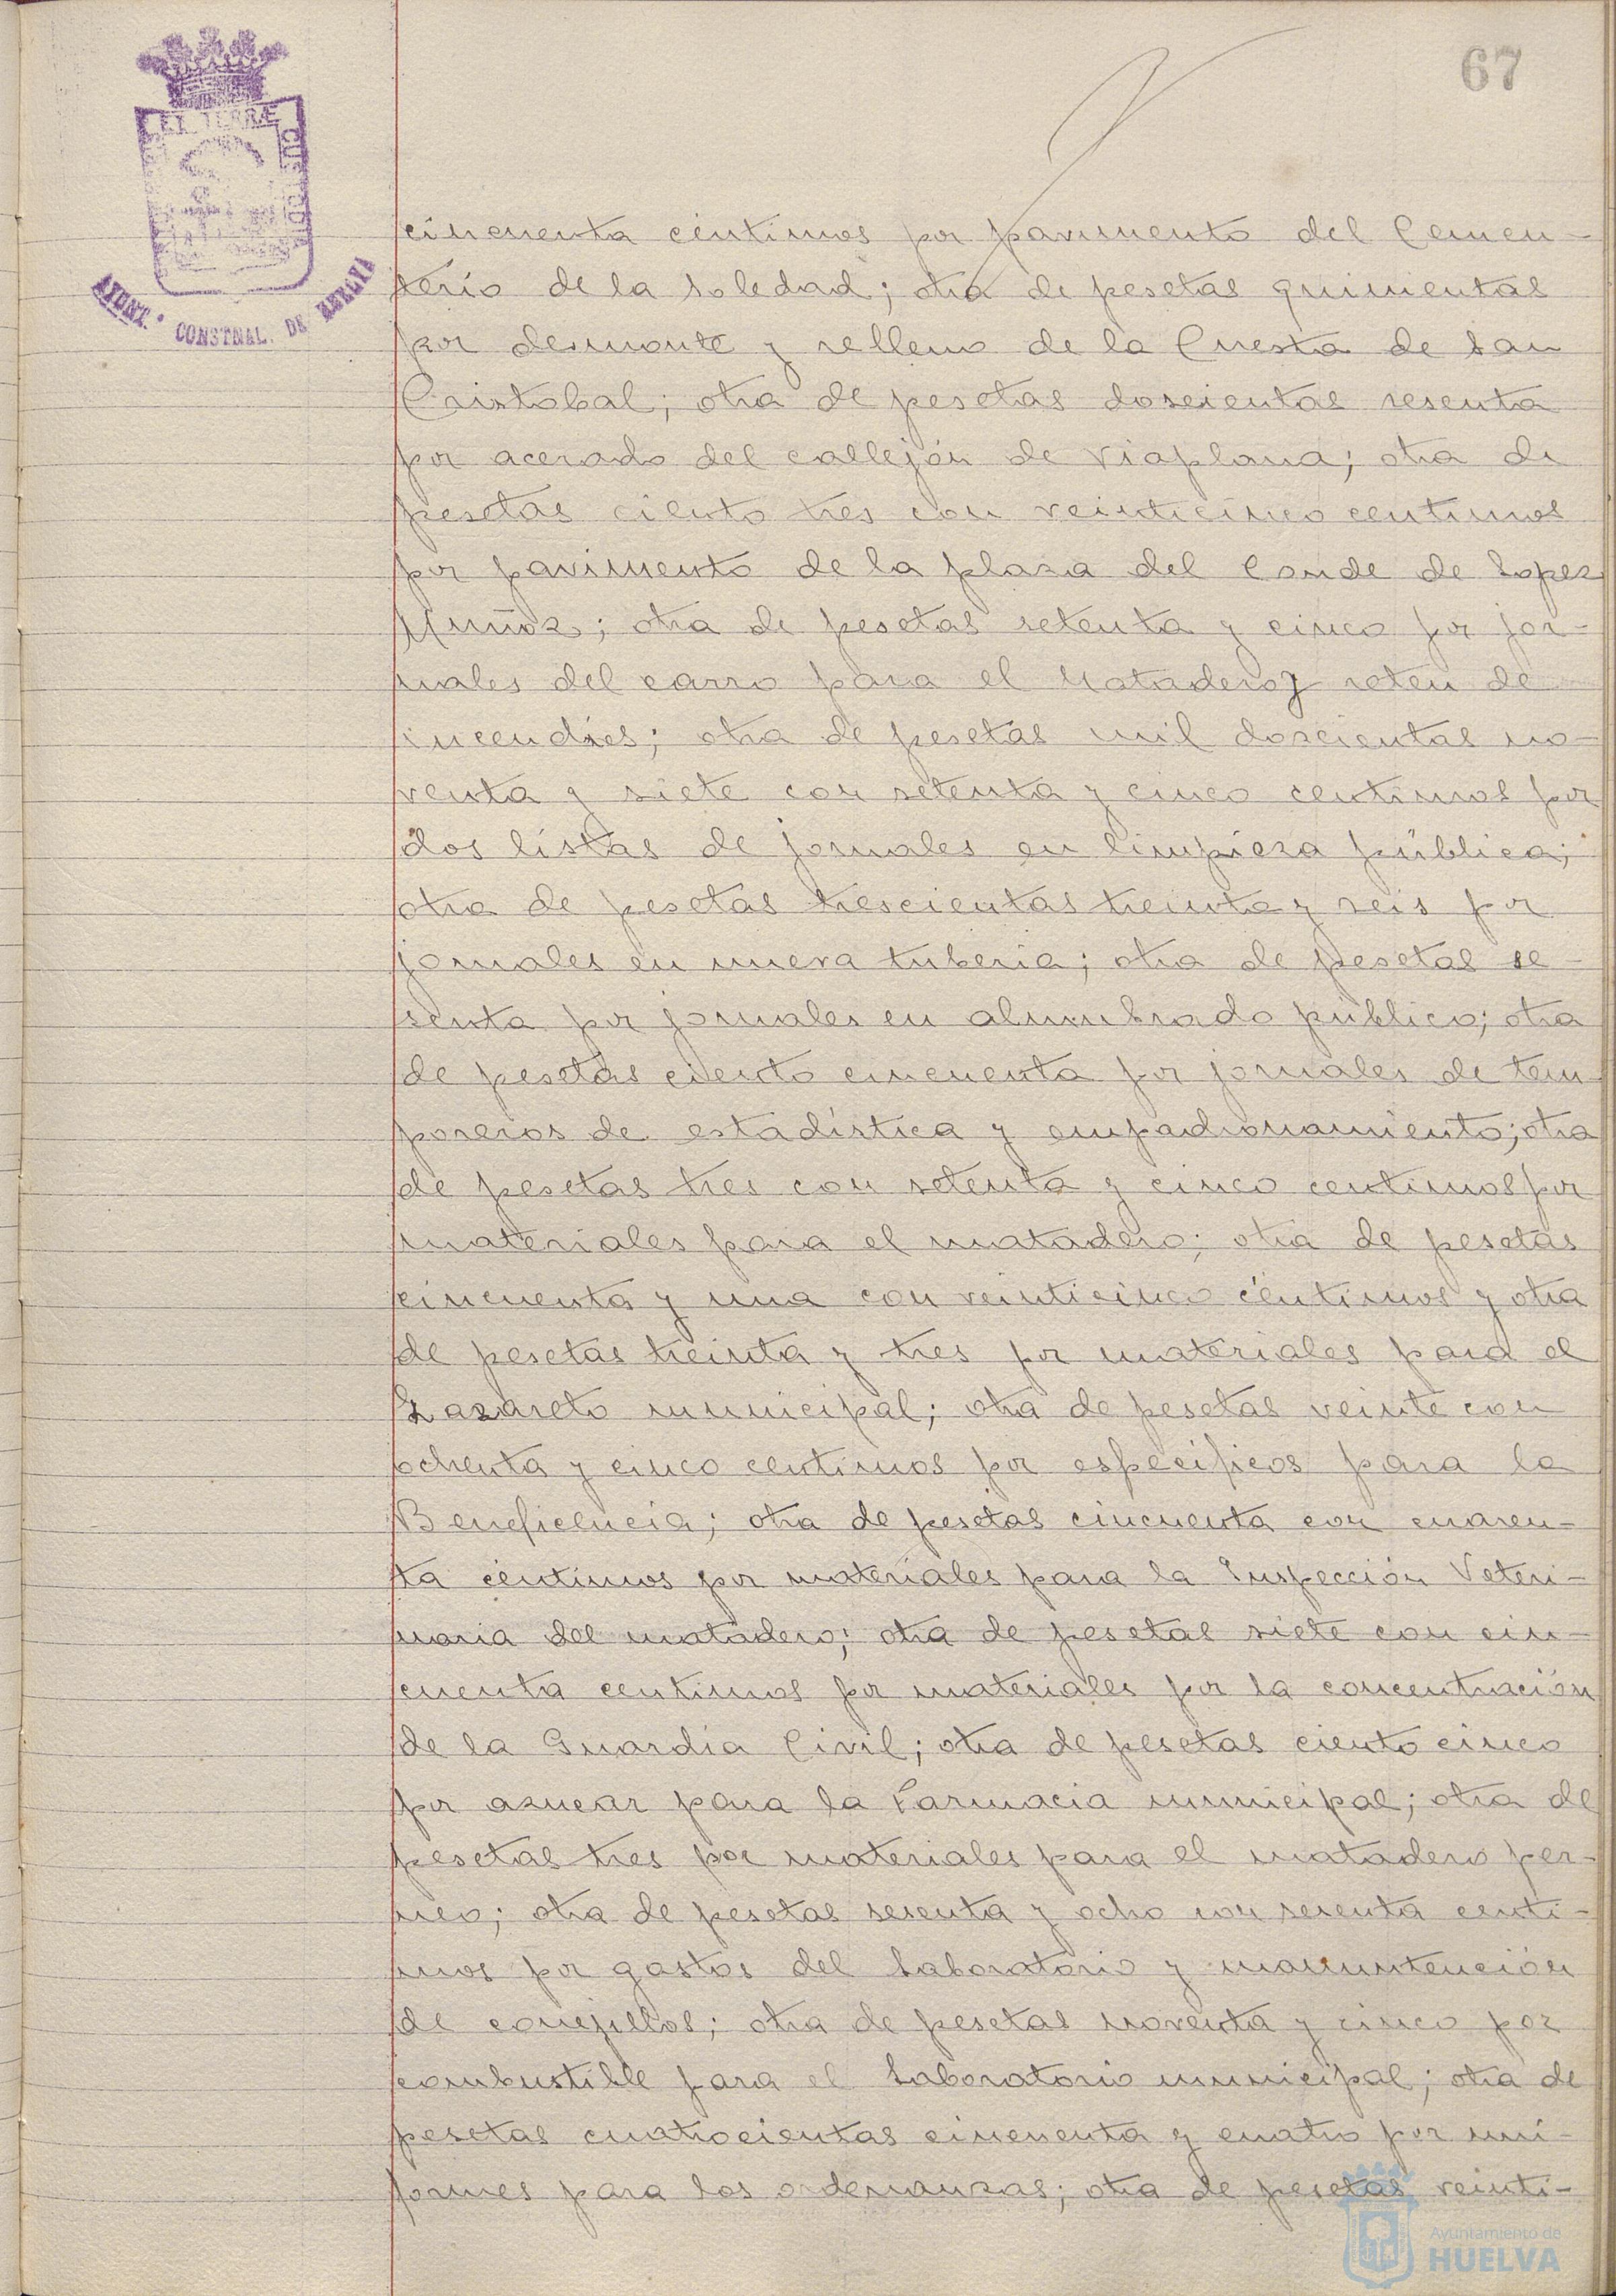 67
ET TERRÆ
CUSTODIA
AYUNT. CONSTNAL. DE HUELVA
cincuenta céntimos por pavimento del Cemen-
terio de la Soledad; otra de pesetas quinientas
por desmonte y relleno de la Cuesta de San
Cristobal; otra de pesetas doscientas sesenta
por acerado del callejón de Viaplana; otra de
pesetas ciento tres con veinticinco centimos
por pavimento de la plaza del Conde de Lopez
Muñoz; otra de pesetas setenta y cinco por jor-
nales del carro para el Matadero y reten de
incendios; otra de pesetas mil doscientas no-
venta y siete con setenta y cinco centimos por
dos listas de jornales en limpieza pública;
otra de pesetas trescientas treinta y seis por
jornales en nueva tuberia; otra de pesetas se-
senta por jornales en alumbrado público; otra
de pesetas ciento cincuenta por jornales de tem-
poreros de estadística y empadronamiento; otra
de pesetas tres con setenta y cinco centimos por
materiales para el matadero; otra de pesetas
cincuenta y una con veinticinco céntimos y otra
de pesetas treinta y tres por materiales para el
Lazareto municipal; otra de pesetas veinte con
ochenta y cinco centimos por específicos para la
Beneficencia; otra de pesetas cincuenta con cuaren-
ta céntimos por materiales para la Inspección Veteri-
naria del matadero; otra de pesetas siete con cin-
cuenta centimos por materiales por la concentración
de la Guardia Civil; otra de pesetas ciento cinco
por azucar para la Farmacia municipal; otra de
pesetas tres por materiales para el matadero per-
neo; otra de pesetas sesenta y ocho con sesenta centi-
mos por gastos del Laboratorio y manuntención
de conejillos; otra de pesetas noventa y cinco por
combustible para el Laboratorio municipal; otra de
pesetas cuatrocientas cincuenta y cuatro por uni-
formes para los ordenanzas; otra de pesetas veinti-
Ayuntamiento de
HUELVA